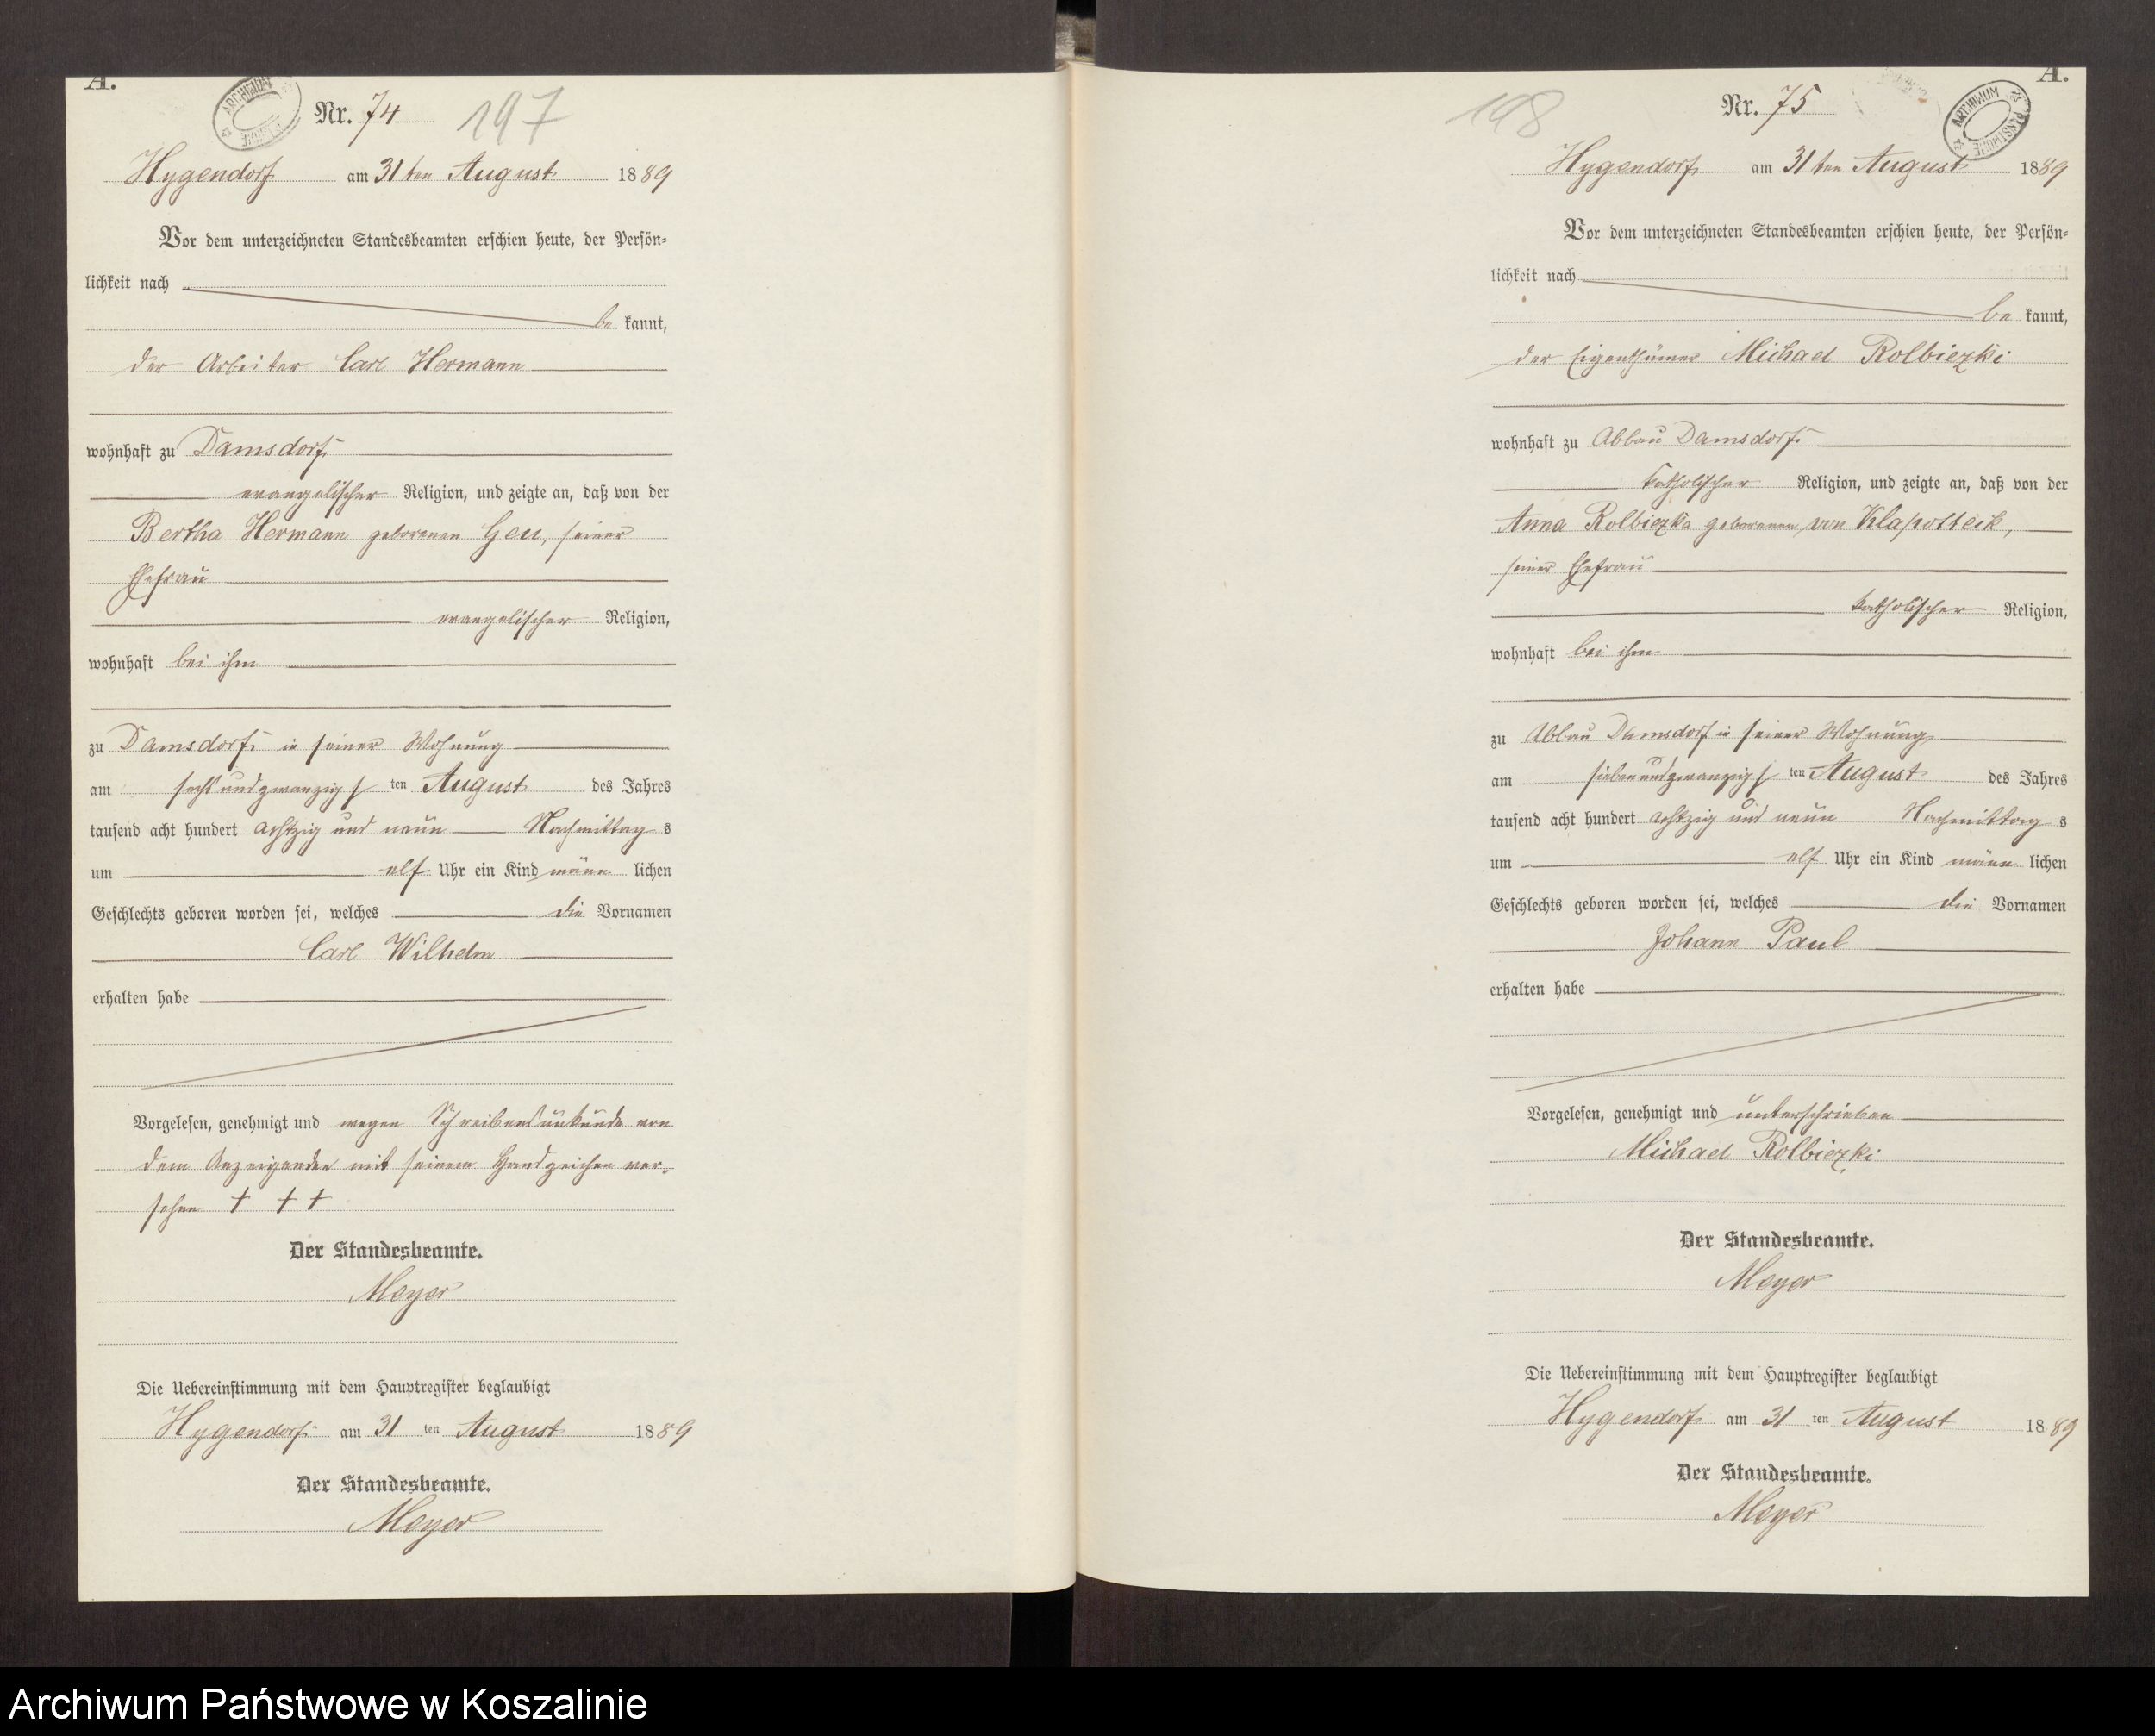 A.
ARCHIWUM
Nr. 74
197
Hygendorf am 31ten August 1889
Vor dem unterzeichneten Standesbeamten erschien heute, der Persön-
lichkeit nach
be kannt,
der Arbeiter Carl Hermann
wohnhaft zu Damsdorf
evangelischer Religion, und zeigte an, daß von der
Bertha Hermann geborenen Geu, seiner
Ehefrau
evangelischer Religion,
wohnhaft bei ihm
zu Damsdorf in seiner Wohnung
am sechsundzwanzigs ten August des Jahres
tausend acht hundert achtzig und neun Nachmittag s
um elf Uhr ein Kind männ lichen
Geschlechts geboren worden sei, welches die Vornamen
Carl Wilhelm
erhalten habe
Vorgelesen, genehmigt und wegen Schreibensunkunde von
dem Anzeigenden mit seinem Handzeichen ver-
sehen + + +
Der Standesbeamte.
Meyer
Die Uebereinstimmung mit dem Hauptregister beglaubigt
Hygendorf am 31 ten August 1889
Der Standesbeamte.
Meyer
A.
198
Nr. 75
ARCHIWUM
Hygendorf am 31ten August 1889
Vor dem unterzeichneten Standesbeamten erschien heute, der Persön-
lichkeit nach
be kannt,
der Eigenthümer Michael Rolbiezki
wohnhaft zu Abbau Damsdorf
katholischer Religion, und zeigte an, daß von der
Anna Rolbiezka geborenen von Klapotteck,
seiner Ehefrau
katholischer Religion,
wohnhaft bei ihm
zu Abbau Damsdorf in seiner Wohnung
am siebenundzwanzigs ten August des Jahres
tausend acht hundert achtzig und neun Nachmittag s
um elf Uhr ein Kind männ lichen
Geschlechts geboren worden sei, welches die Vornamen
Johann Paul
erhalten habe
Vorgelesen, genehmigt und unterschrieben
Michael Rolbiezki
Der Standesbeamte.
Meyer
Die Uebereinstimmung mit dem Hauptregister beglaubigt
Hygendorf am 31 ten August 1889
Der Standesbeamte.
Meyer
Archiwum Państwowe w Koszalinie